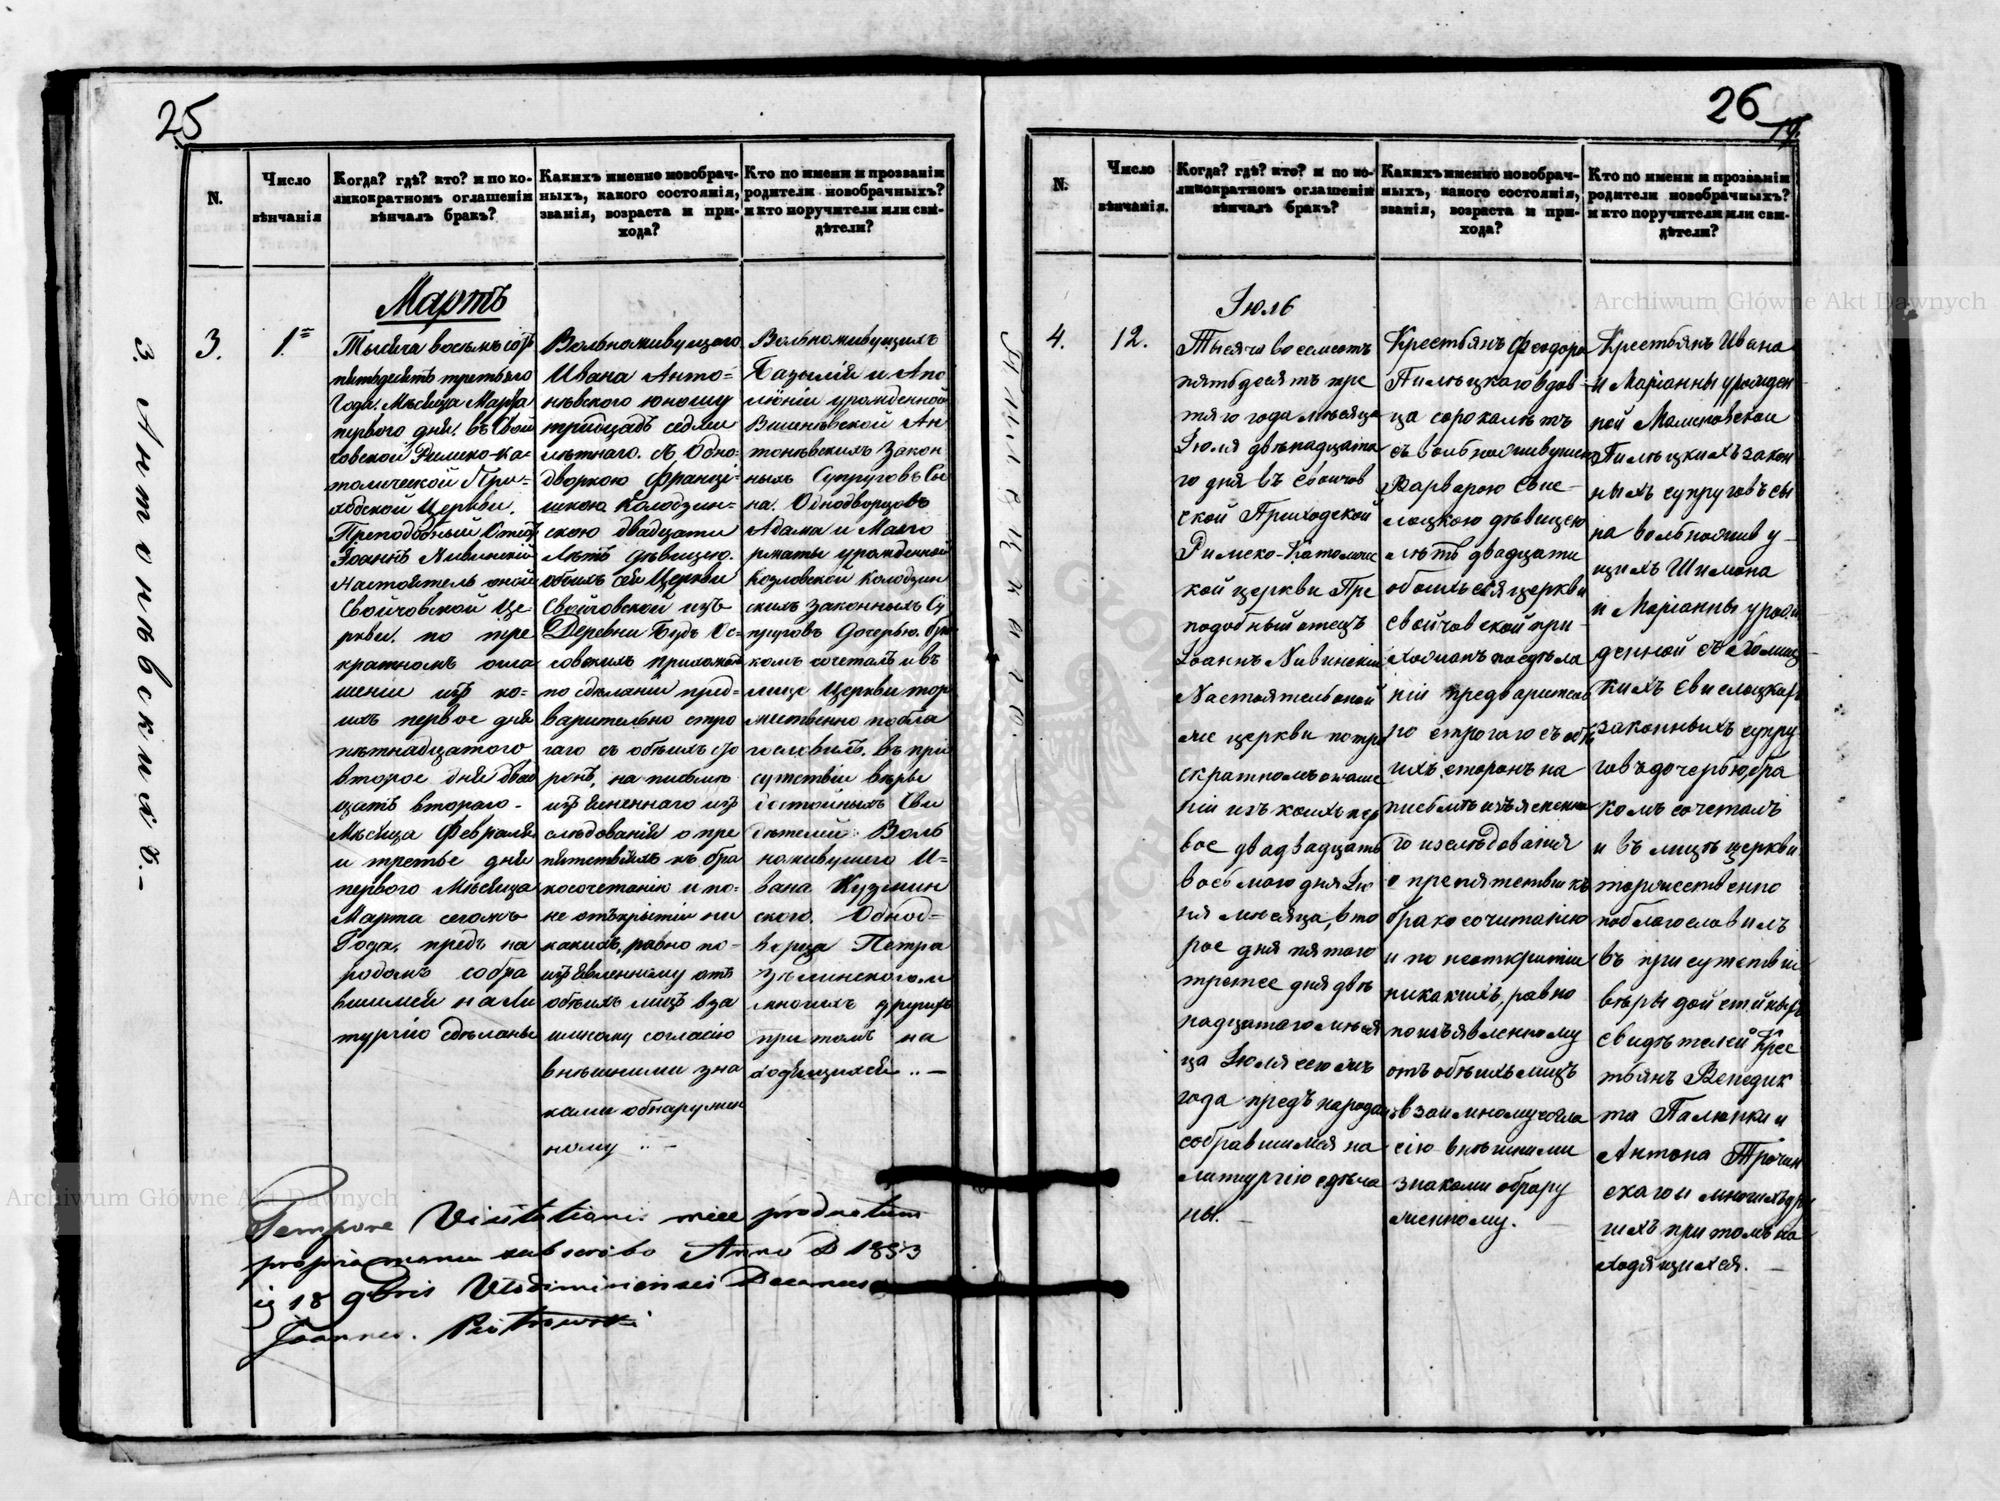 25
N.
Число
вѣнчанія
Когда? гдѣ? кто? и по ко-
ликократномъ оглашеніи
вѣнчалъ бракъ?
Какихъ именно новобрач-
ныхъ, какого состоянія,
званія, возраста и при-
хода?
Кто по имени и прозванію
родители новобрачныхъ?
и кто поручители или сви-
дѣтели?
3. Антонѣвскихъ.-
Мартъ
3.
1.
Тысяча восемьсотъ
пятьдесятъ третьяго
Года. Мѣсяца Марта
перваго дня. въ Свой
човской Римско-ка-
толической При-
ходской Церкви.
Преподобный Отецъ
Іоаннъ Нивинскій
Настоятель оной
Свойчовской Це-
ркви. по трех
кратномъ огла
шеніи изъ ко-
ихъ первое дня
пятнадцатого
второе дня двад
цать второго.
Мѣсяца Февраля
и третье дня
первого Мѣсяца
Марта сегожъ
Года, предъ на
родомъ собра
вшимся на Ли
тургію сдѣланы
Вольноживущаго
Ивана Анто-
нѣвского юношу
тридцать седми
лѣтнаго. съ Одно-
дворкою Франці-
шкою Колодзин-
скою двадцати
лѣтъ дѣвицею.
обоихъ сей Церкви
Свойчовской изъ
Деревни Будъ Ос-
совскихъ прихожан
по сдѣланіи пред-
варительно стро
гаго съ обѣихъ сто
ронъ, на письмѣ
изъясненнаго изъ
слѣдованія о пре
пятствіяхъ къ бра
косочетанію и по-
не открытіи ни
какихъ, равно по-
изъявленному отъ
обѣихъ лицъ вза
имному согласію
внѣшними зна
ками обнаружен
ному
Вольноживущихъ
Базылія и Апо
лоніи урожденной
Вишнѣвской Ан
тонѣвскихъ закон
ныхъ Супруговъ Сы
на. Однодворцовъ
Адама и Малго
ржаты урожденной
Козловской Колодзин
скихъ законныхъ Су
пруговъ дочерью. бра
комъ сочеталъ и въ
лице Церкви тор
жественно побла
гословилъ. въ при
сутствіи вѣры
достойныхъ Сви
дѣтелей: Воль
ноживущего И-
вана Кузмин
ского. Однод-
ворца Петра
Зѣлинского и
многихъ другихъ
при томъ на
ходящихся
Tempore Visitationis mee productum
propria manu subscribo Anno D 1853
18 9bris Vlodimiriensis Decanus
Joannes Piotrowski
26
N.
Число
вѣнчанія.
Когда? гдѣ? кто? и по ко-
ликократномъ оглашеніи
вѣнчалъ бракъ?
Какихъ именно новобрач-
ныхъ, какого состоянія,
званія, возраста и при-
хода?
Кто по имени и прозванію
родители новобрачныхъ?
и кто поручители или сви-
дѣтели?
Іюль
4.
12.
Тысяча восемсотъ
пятьдесятъ тре
тяго года мѣсяца
Іюля двѣнадцата
го дня въ Свойчов
ской Приходской
Римско-Католичес
кой церкви Пре
подобный отецъ
Іоаннъ Нивинскій
Настоятель оной
же церкви по трех
скратномъ оглаше
ніи изъ коихъ пер
вое двадцать
восьмого дня Ію
ня мѣсяца, вто
рое дня пятого
третее дня двѣ
надцатого мѣся
ца Іюля сегожъ
года предъ народомъ
собравшимся на
литургію сдѣла
ны.
Крестьянъ Феодора
Пилѣцкаго вдов-
ца сорока лѣтъ
съ вольноживущею
Варварою Свис-
лоцкою дѣвицею
лѣтъ двадцати
обоихъ сея церкви
свойчовской при-
хожанъ по сдѣла
ніи предваритель
но строгаго съ обѣ
ихъ сторонъ на
письмѣ изъясненна
го изслѣдованія
о препятствіи къ
бракосочитанію
и по неоткритіи
никакихъ, равно
по изъявленному
отъ обѣихъ лицъ
взаимному согла
сію внѣшними
знаками обнару
женному.
Крестьянъ Ивана
и Маріанны урожден
ной Малиновской
Пилѣцкихъ закон
ныхъ супруговъ сы
на вольножив у-
щихъ Шимона
и Маріанны урож
денной съ Холмиц
кихъ Свислоцкихъ
законныхъ супру
говъ дочерью, бра
комъ сочеталъ
и въ лицѣ церкви
торжественно
поблагословилъ
въ присутствіи
вѣры достойныхъ
свидѣтелей Крес
тьянъ Венедик
та Палюхи и
Антона Трочан
скаго и многихъ дру
гихъ при томъ на
ходящихся.
Archiwum Główne Akt Dawnych
Archiwum Główne Akt Dawnych